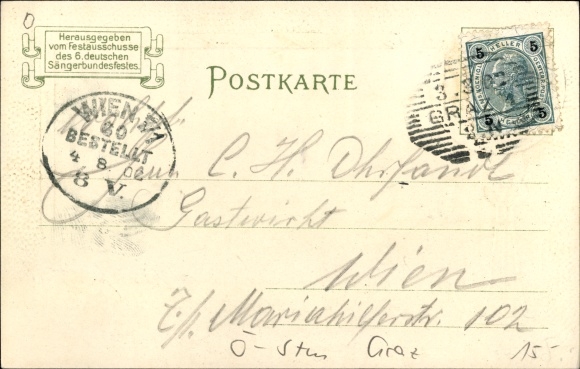 Herausgegeben
vom Festausschusse
des 6. deutschen
Sängerbundesfestes.
POSTKARTE
5 HELLER 5
5 5
GRAZ
WIEN 7/1
60
BESTELLT
4. 8. 02
8 V.
C. H.
Gastwirth
Wien
Mariahilferstr. 102
Ö-Stm Graz 15-